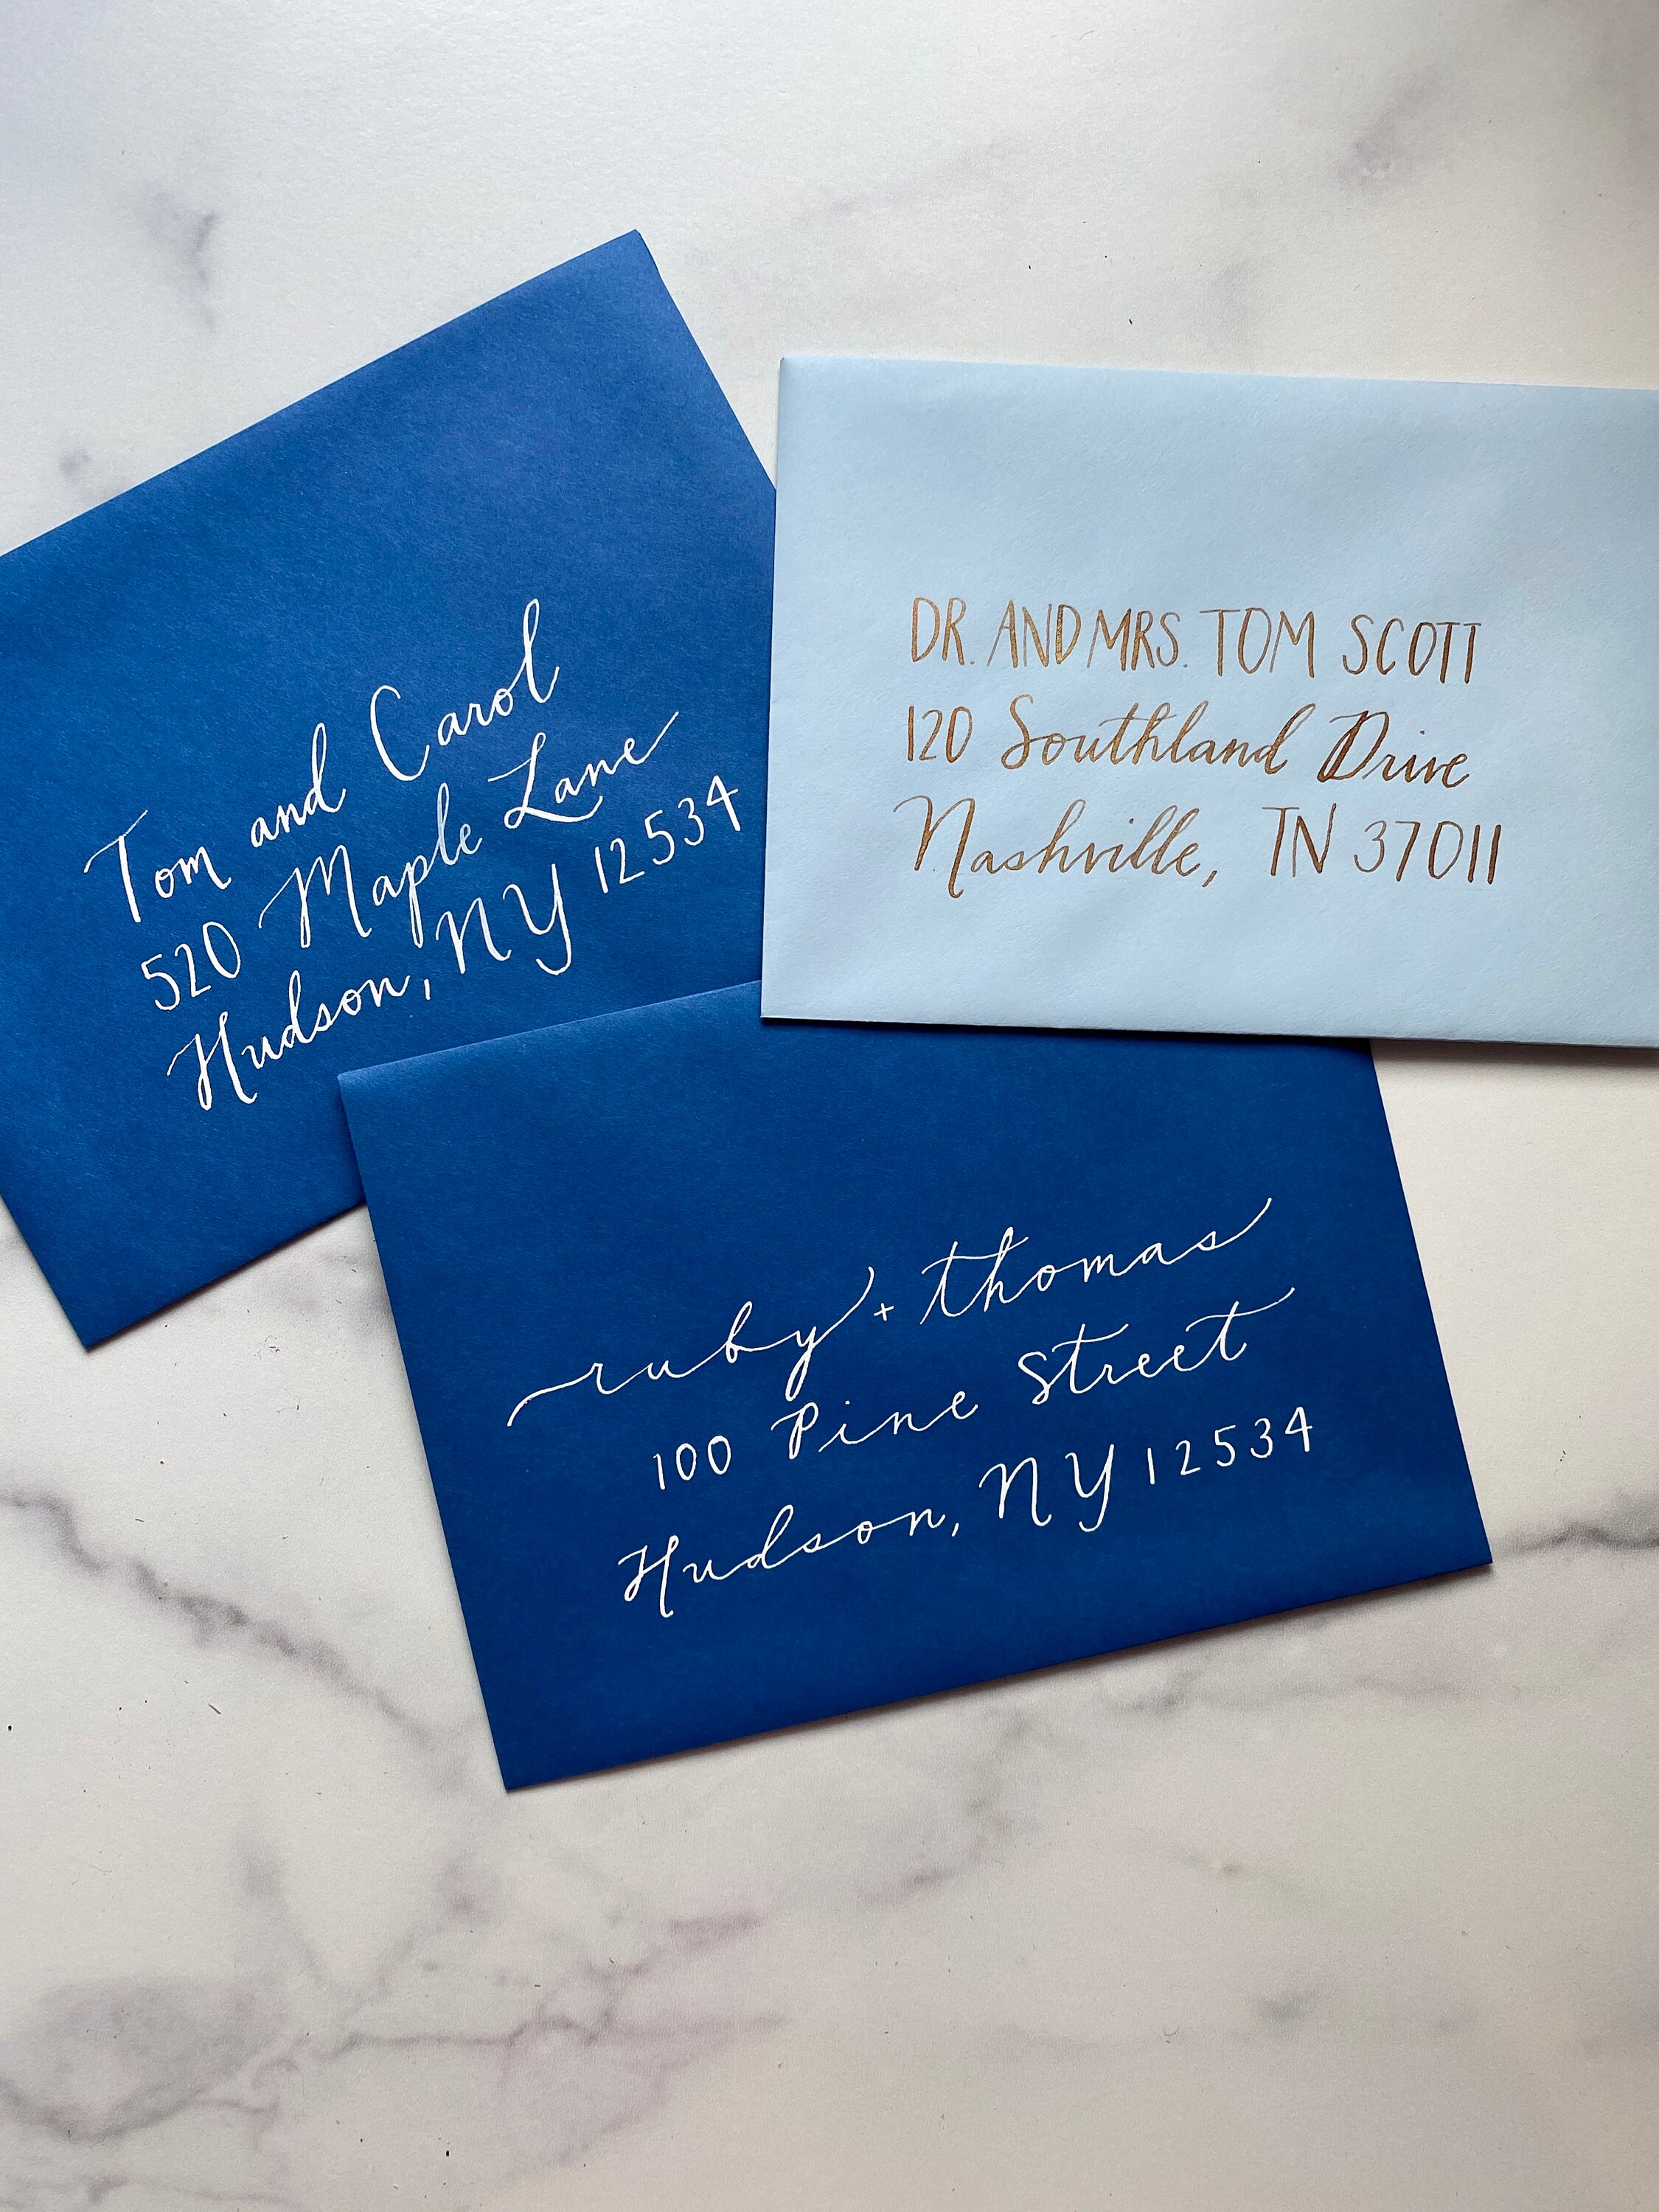 Tom and Carol
520 Maple Lane
Hudson, NY 12534
DR. AND MRS. TOM SCOTT
120 Southland Drive
Nashville, TN 37011
ruby + thomas
100 Pine Street
Hudson, NY 12534